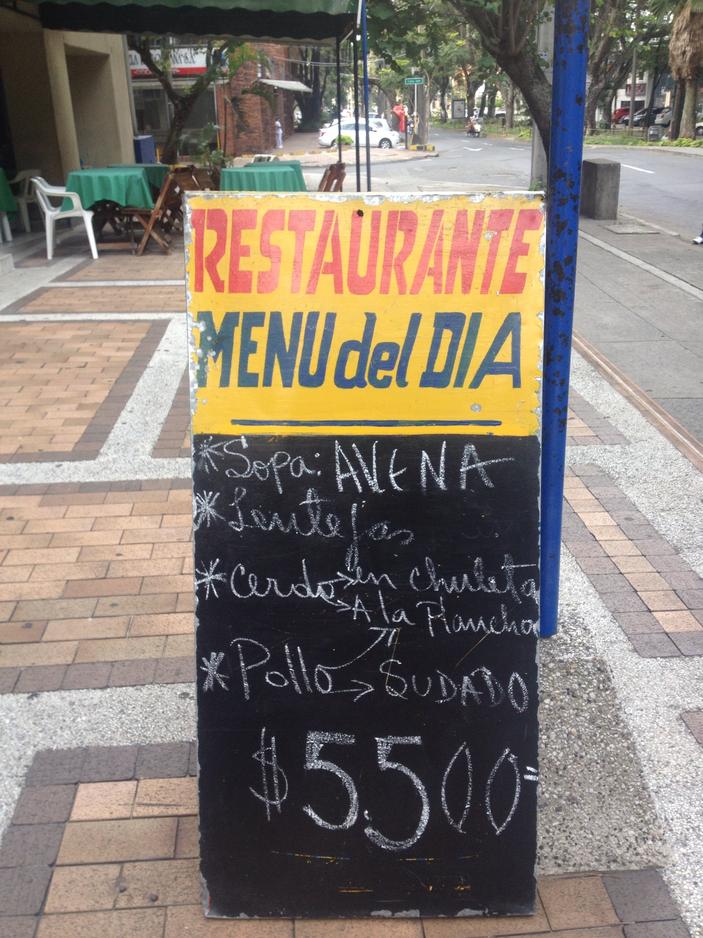 RESTAURANTE
MENU del DIA
* Sopa: AVENA
* Lentejas
* Cerdo → en chuleta
→ A la Plancha
* Pollo → SUDADO
$5.500=